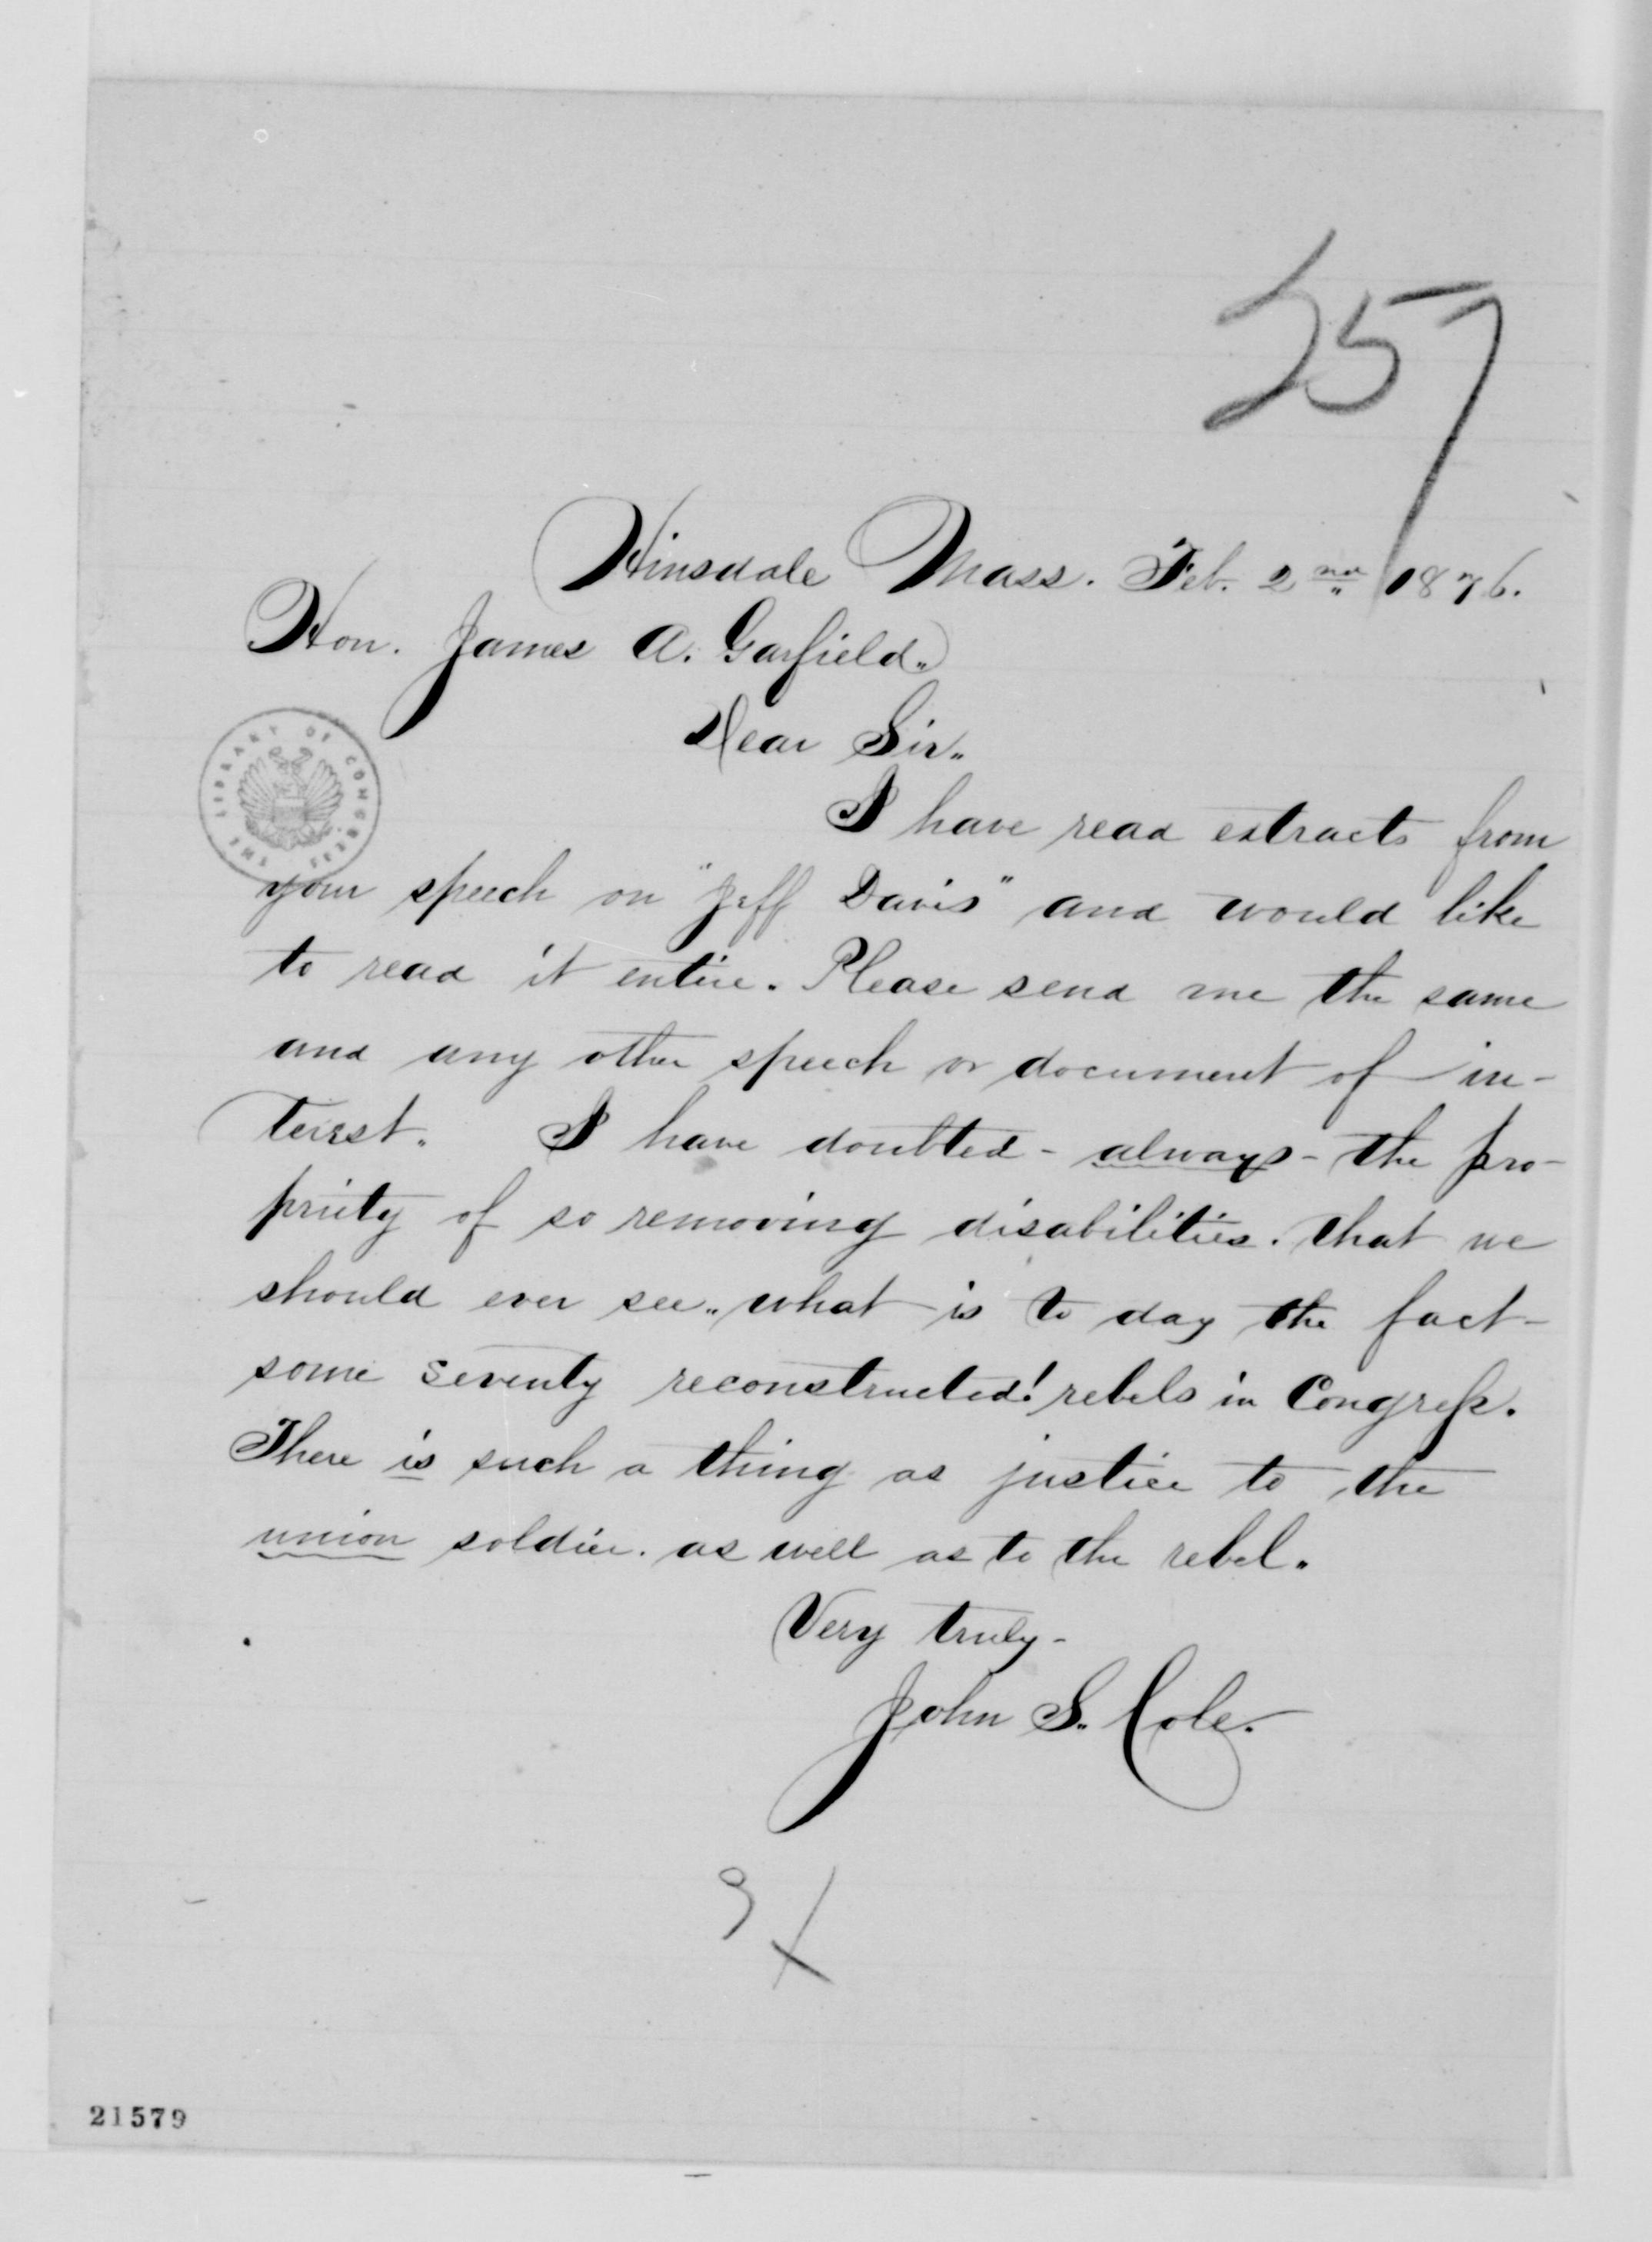 257
Hinsdale Mass. Feb. 2nd 1876.
Hon. James A. Garfield.
Dear Sir.
THE LIBRARY OF CONGRESS
I have read extracts from
your speech on "Jeff Davis" and would like
to read it entire. Please send me the same
and any other speech or document of in-
terest. I have doubted - always - the pro-
priety of so removing disabilities. that we
should ever see, what is to day the fact -
some seventy reconstructed! rebels in Congress.
There is such a thing as justice to the
union soldier. as well as to the rebel.
Very truly -
John S. Cole.
21579